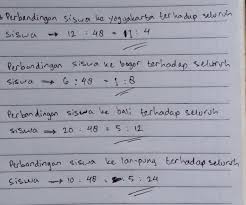 Perbandingan siswa ke yogyakarta terhadap seluruh
siswa → 12 : 48 = 1 : 4
Perbandingan siswa ke bogor terhadap seluruh
siswa → 6 : 48 = 1 : 8
Perbandingan siswa ke bali terhadap seluruh
siswa → 20 : 48 = 5 : 12
Perbandingan siswa ke lampung terhadap seluruh
siswa → 10 : 48 = 5 : 24